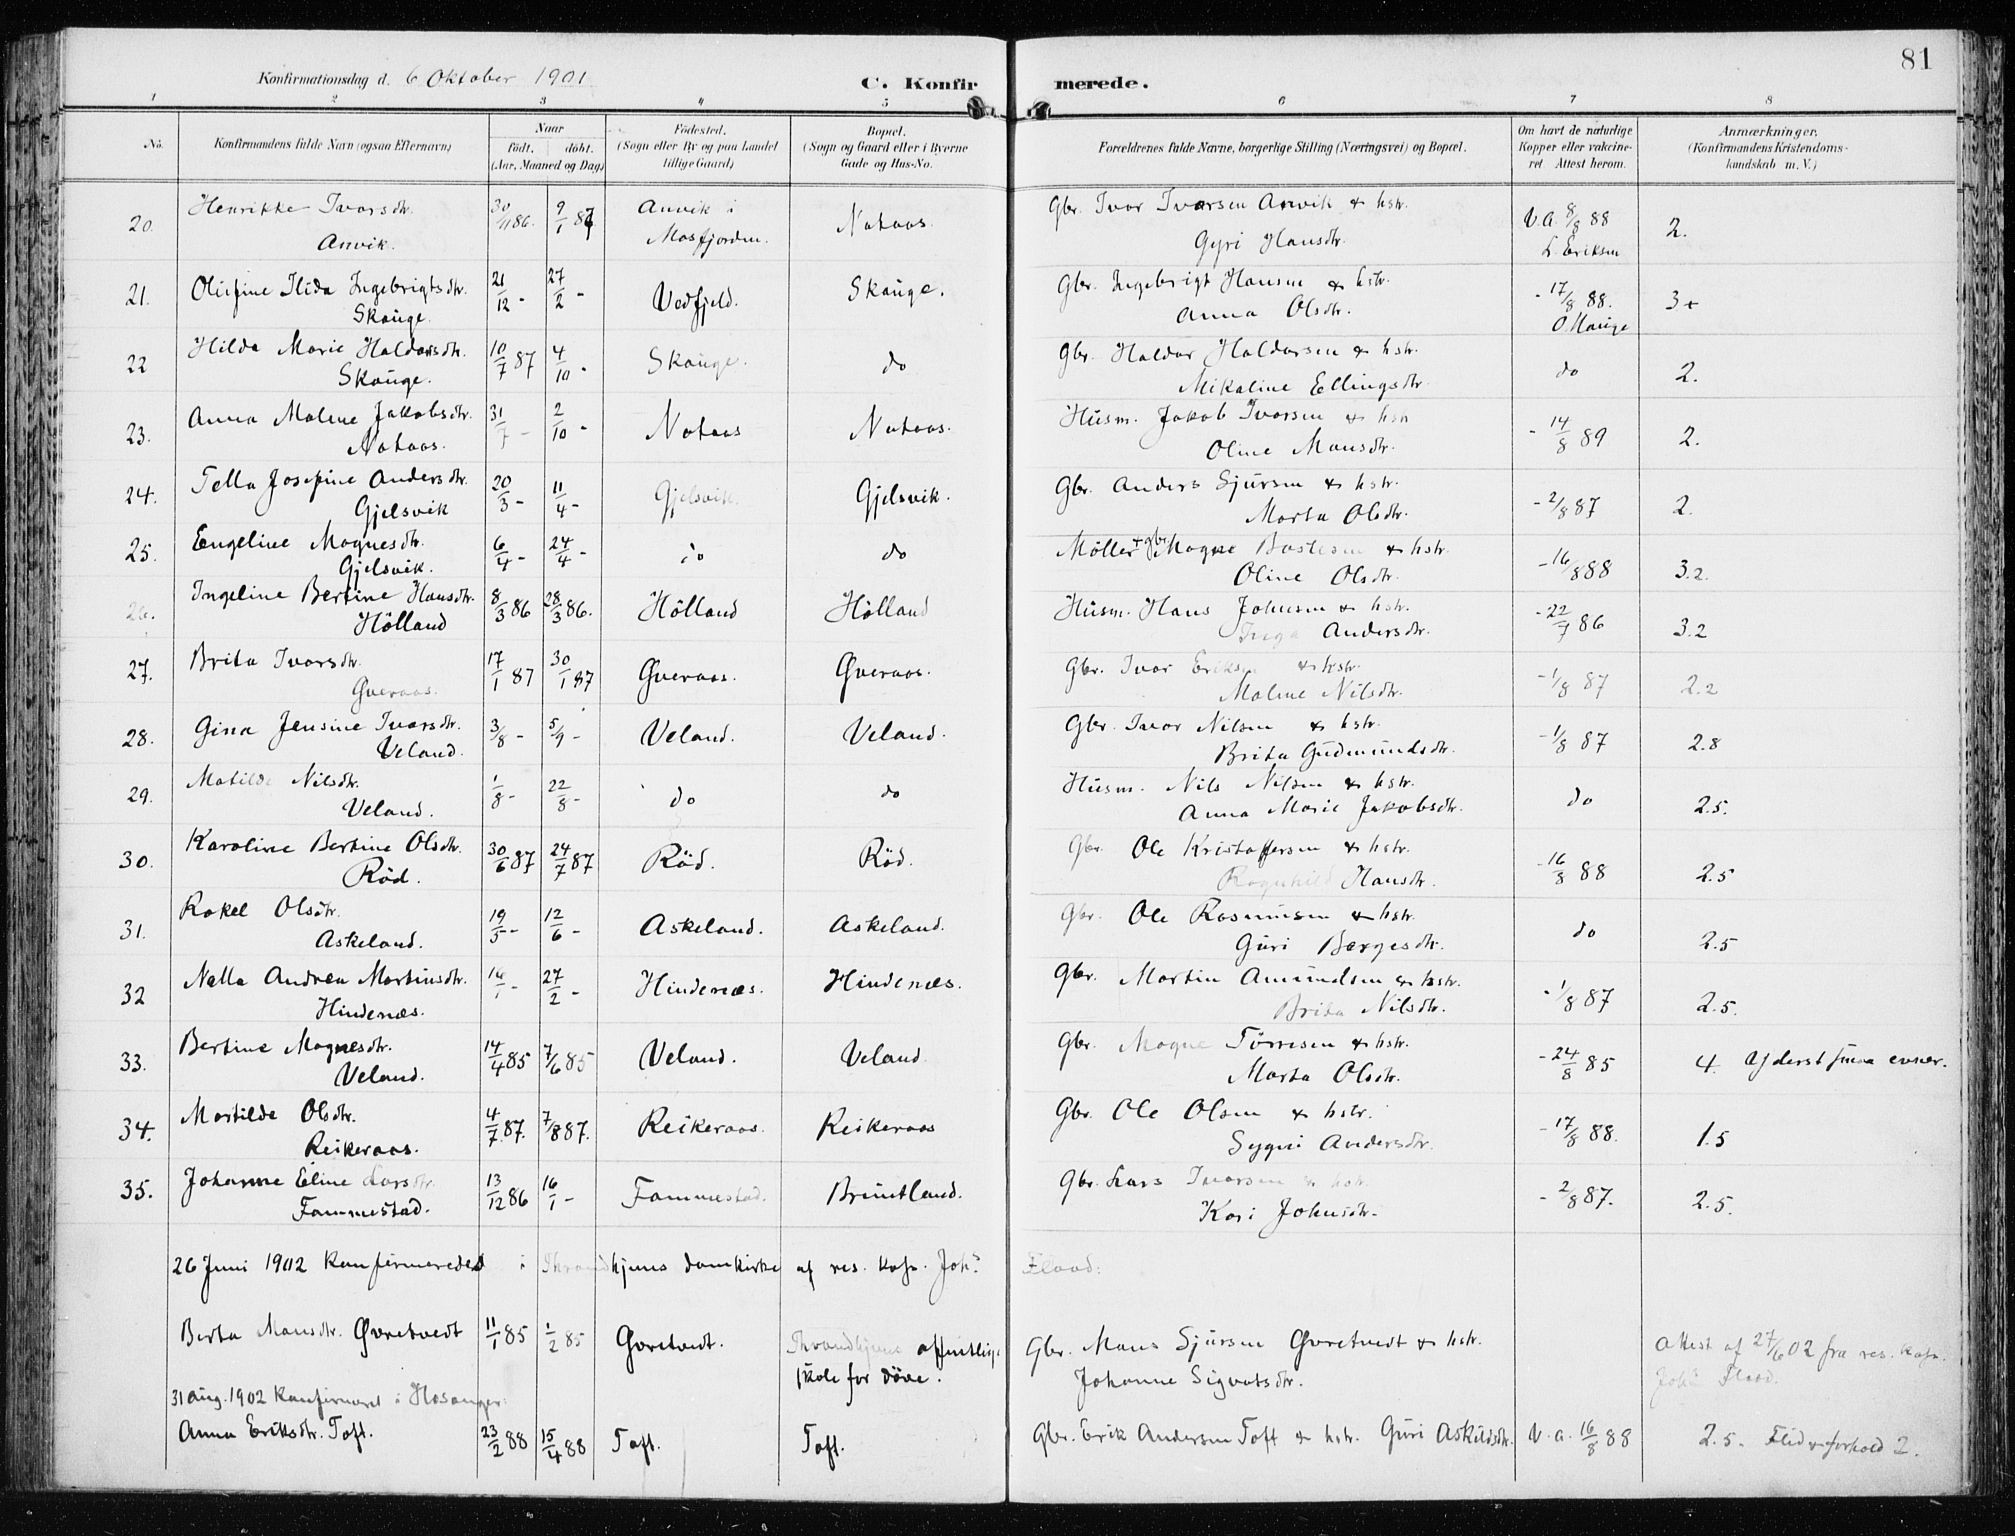 81
Konfirmationsdag d. 6 Oktober 1901
C. Konfirmerede.
1 2 3 4 5 6 7 8
No. Konfirmandens fulde Navn (ogsaa Efternavn) Naar født. døbt. (Aar, Maaned og Dag) Fødested. (Sogn eller By og paa Landet tillige Gaard) Bopæl. (Sogn og Gaard eller i Byerne Gade og Hus-No. Forældrenes fulde Navne, borgerlige Stilling (Næringsvei) og Bopæl. Om havt de naturlige Kopper eller vakcineret Attest herom. Anmærkninger. (Konfirmandens Kristendomskundskab m. V.)
20. Henrikke Ivarsdtr. 30/11 86. 9/1 87 Anvik i Nataas. Gbr. Ivar Ivarsen Anvik & hstr. V.A. 8/8 88 2.
Anvik. Masfjorden. Gyri Hansdtr. L. Eriksen
21. Olufine Ilida Ingebrigtsdtr. 21/12 - 27/2 - Vedfjeld. Skauge. Gbr. Ingebrigt Hansen & hstr. - 17/8 88. 3+
Skauge. Anna Olsdtr. O. Hauge
22 Hilda Marie Haldorsdtr. 10/7 87 4/10 - Skauge. do Gbr. Haldor Haldorsen & hstr. do 2.
Skauge. Mikaline Ellingsdtr.
23. Anna Malene Jakobsdtr. 31/7 - 2/10 - Nataas Nataas. Husm. Jakob Ivarsen & hstr - 14/8 89 2.
Nataas. Oline Mansdtr.
24. Tella Josefine Andersdtr. 20/3 - 11/4 - Gjelsvik. Gjelsvik. Gbr. Anders Sjursen & hstr. - 2/8 87 2.
Gjelsvik Marta Olsdtr.
25. Engeline Magnesdtr. 6/4 - 24/4 - do do Møller & gbr. Magne Bastesen & hstr. - 16/8 88 3.2.
Gjelsvik. Oline Olsdtr.
26. Ingeline Bertine Hansdtr. 8/3 86 28/3 86. Hölland Hölland Husm. Hans Johnsen & hstr. - 22/7 86 3.2
Hölland Inga Andersdtr.
27. Brita Ivarsdtr. 17/1 87 30/1 87 Qveraas. Qveraas. Gbr. Ivar Eriksen & hstr. - 1/8 87 2.2
Qveraas. Malene Nilsdtr.
28. Gina Jensine Ivarsdtr. 3/8 - 5/9 - Veland. Veland. Gbr. Ivar Nilsen & hstr. - 1/8 87 2.8
Veland. Brita Gudmundsdtr.
29. Matilde Nilsdtr. 1/8 - 22/8 - do do Husm. Nils Nilsen & hstr. do 2.5.
Veland. Anna Marie Jakobsdtr.
30. Karoline Bertine Olsdtr. 30/6 87 24/7 87 Röd. Röd. Gbr. Ole Kristoffersen & hstr. - 16/8 88 2.5
Röd. Ragnhild Hansdtr.
31. Rakel Olsdtr. 19/5 - 12/6 - Askeland. Askeland. Gbr. Ole Rasmussen & hstr. do 2.5
Askeland. Guri Børgesdtr.
32 Nella Andrea Martinsdtr. 14/1 - 27/2 - Hindenæs. Hindenæs. Gbr. Martin Amundsen & hstr. - 1/8 87 2.5.
Hindenæs. Brita Nilsdtr.
33. Bertine Magnesdtr. 14/4 85 7/6 85 Veland. Veland. Gbr. Magne Tørresen & hstr. - 24/8 85 4. Yderst smaa evner.
Veland. Marta Olsdtr.
34. Martilde Olsdtr. 4/7 87. 7/8 87. Reikeraas. Reikeraas Gbr. Ole Olsen & hstr. - 17/8 88. 1.5
Reikeraas. Sygni Andersdtr.
35. Johanne Eline Larsdtr. 13/12 86 16/1 - Fammestad. Bruntland. Gbr. Lars Ivarsen & hstr. - 2/8 87. 2.5.
Fammestad. Kari Johnsdtr.
26 Juni 1902 konfirmeredes i Throndhjems domkirke af res. kap. Johs. Flood:
Berta Mansdtr. Øvretvedt 11/1 85 1/2 85 Øvretvedt. Throndhjems offentlige Gbr. Mans Sjursen Øvretvedt & hstr. Attest af 27/6 02 fra res. kap.
skole for døve. Johanne Sigvatsdtr. Johs Flood.
31 aug. 1902 konfirmeret i Hosanger:
Anna Eriksdtr. Toft. 23/2 88 15/4 88 Toft. Toft. Gbr. Erik Andersen Toft & hstr. Guri Askildsdtr. V. a. 16/8 88 2.5. Flid & forhold 2.